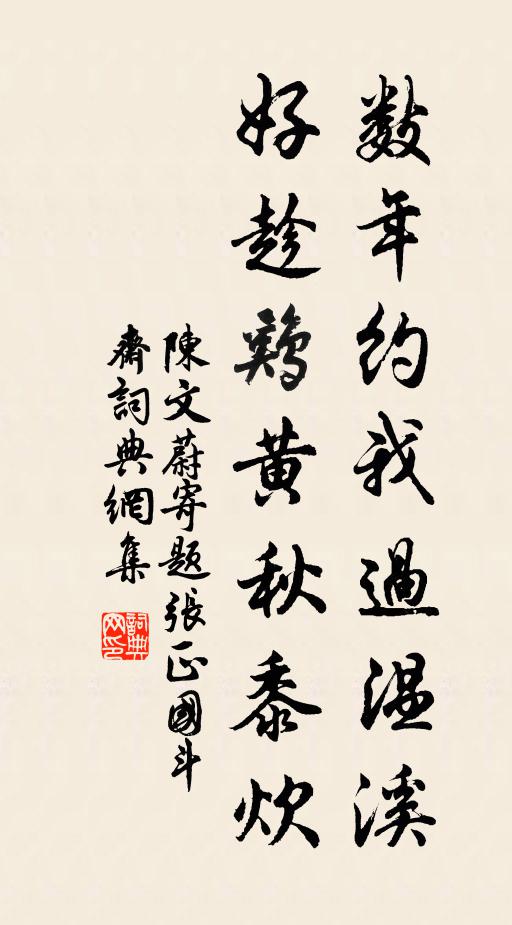 数年約我過温溪
好趁鷄黄秋黍炊
陳文蔚寄題張正國斗
齋詞典網集
詞典网印